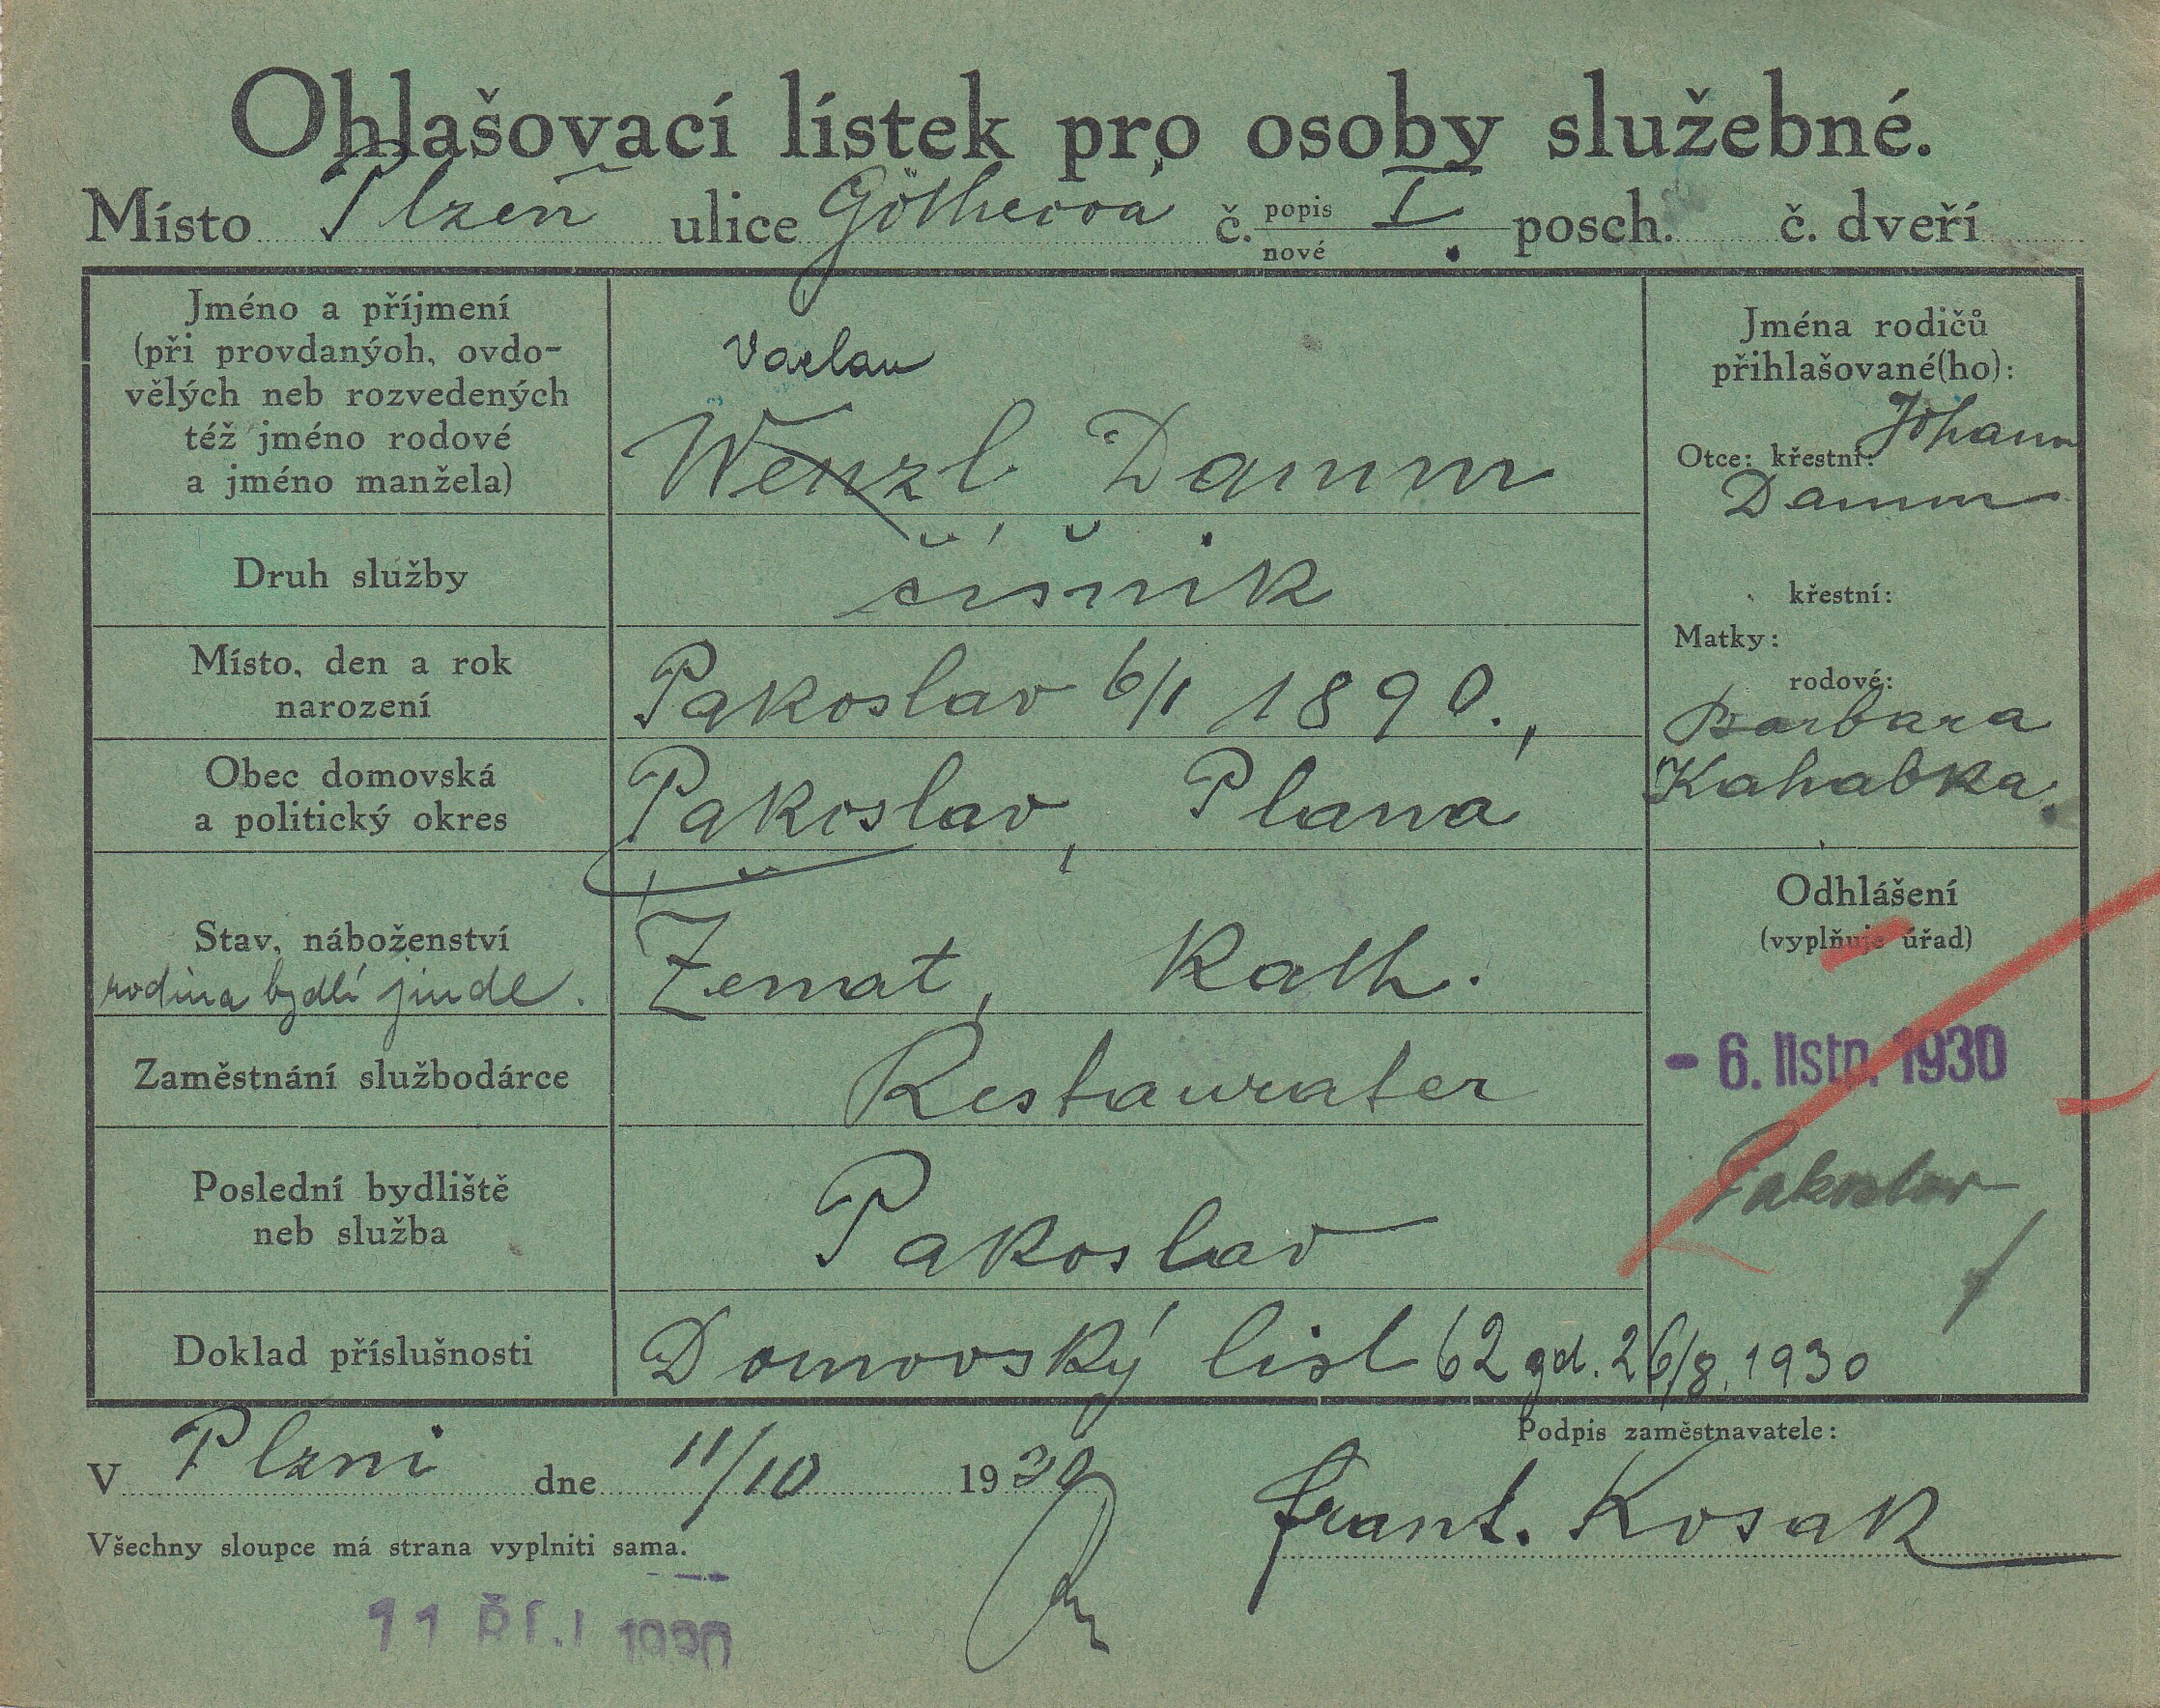 Ohlašovací lístek pro osoby služebné.
Místo Plzeň ulice Götheova č. popis nové I. posch. č. dveří
Jméno a příjmení
(při provdanýoh, ovdo-
vělých neb rozvedených
též jméno rodové
a jméno manžela)
Vaclav
Wenzl Damm
Jména rodičů
přihlašované(ho):
Otce: křestní: Johann
Damm
křestní:
Matky:
rodové:
Barbara
Kahabka.
Druh služby
číšnik
Místo, den a rok
narození
Pakoslav 6/1 1890.,
Obec domovská
a politický okres
Pakoslav, Planá
Stav, náboženství
rodina bydlí jinde.
Ženat, Kath.
Odhlášení
(vyplňuje úřad)
- 6. listp. 1930
Pakoslav
Zaměstnání službodárce
Restaurater
Poslední bydliště
neb služba
Pakoslav
Doklad příslušnosti
Domovský list 62 gd. 26/8. 1930
V Plzni dne 11/10 1930
Podpis zaměstnavatele:
Frant. Kosak
Všechny sloupce má strana vyplniti sama.
11 ŘÍJ 1930